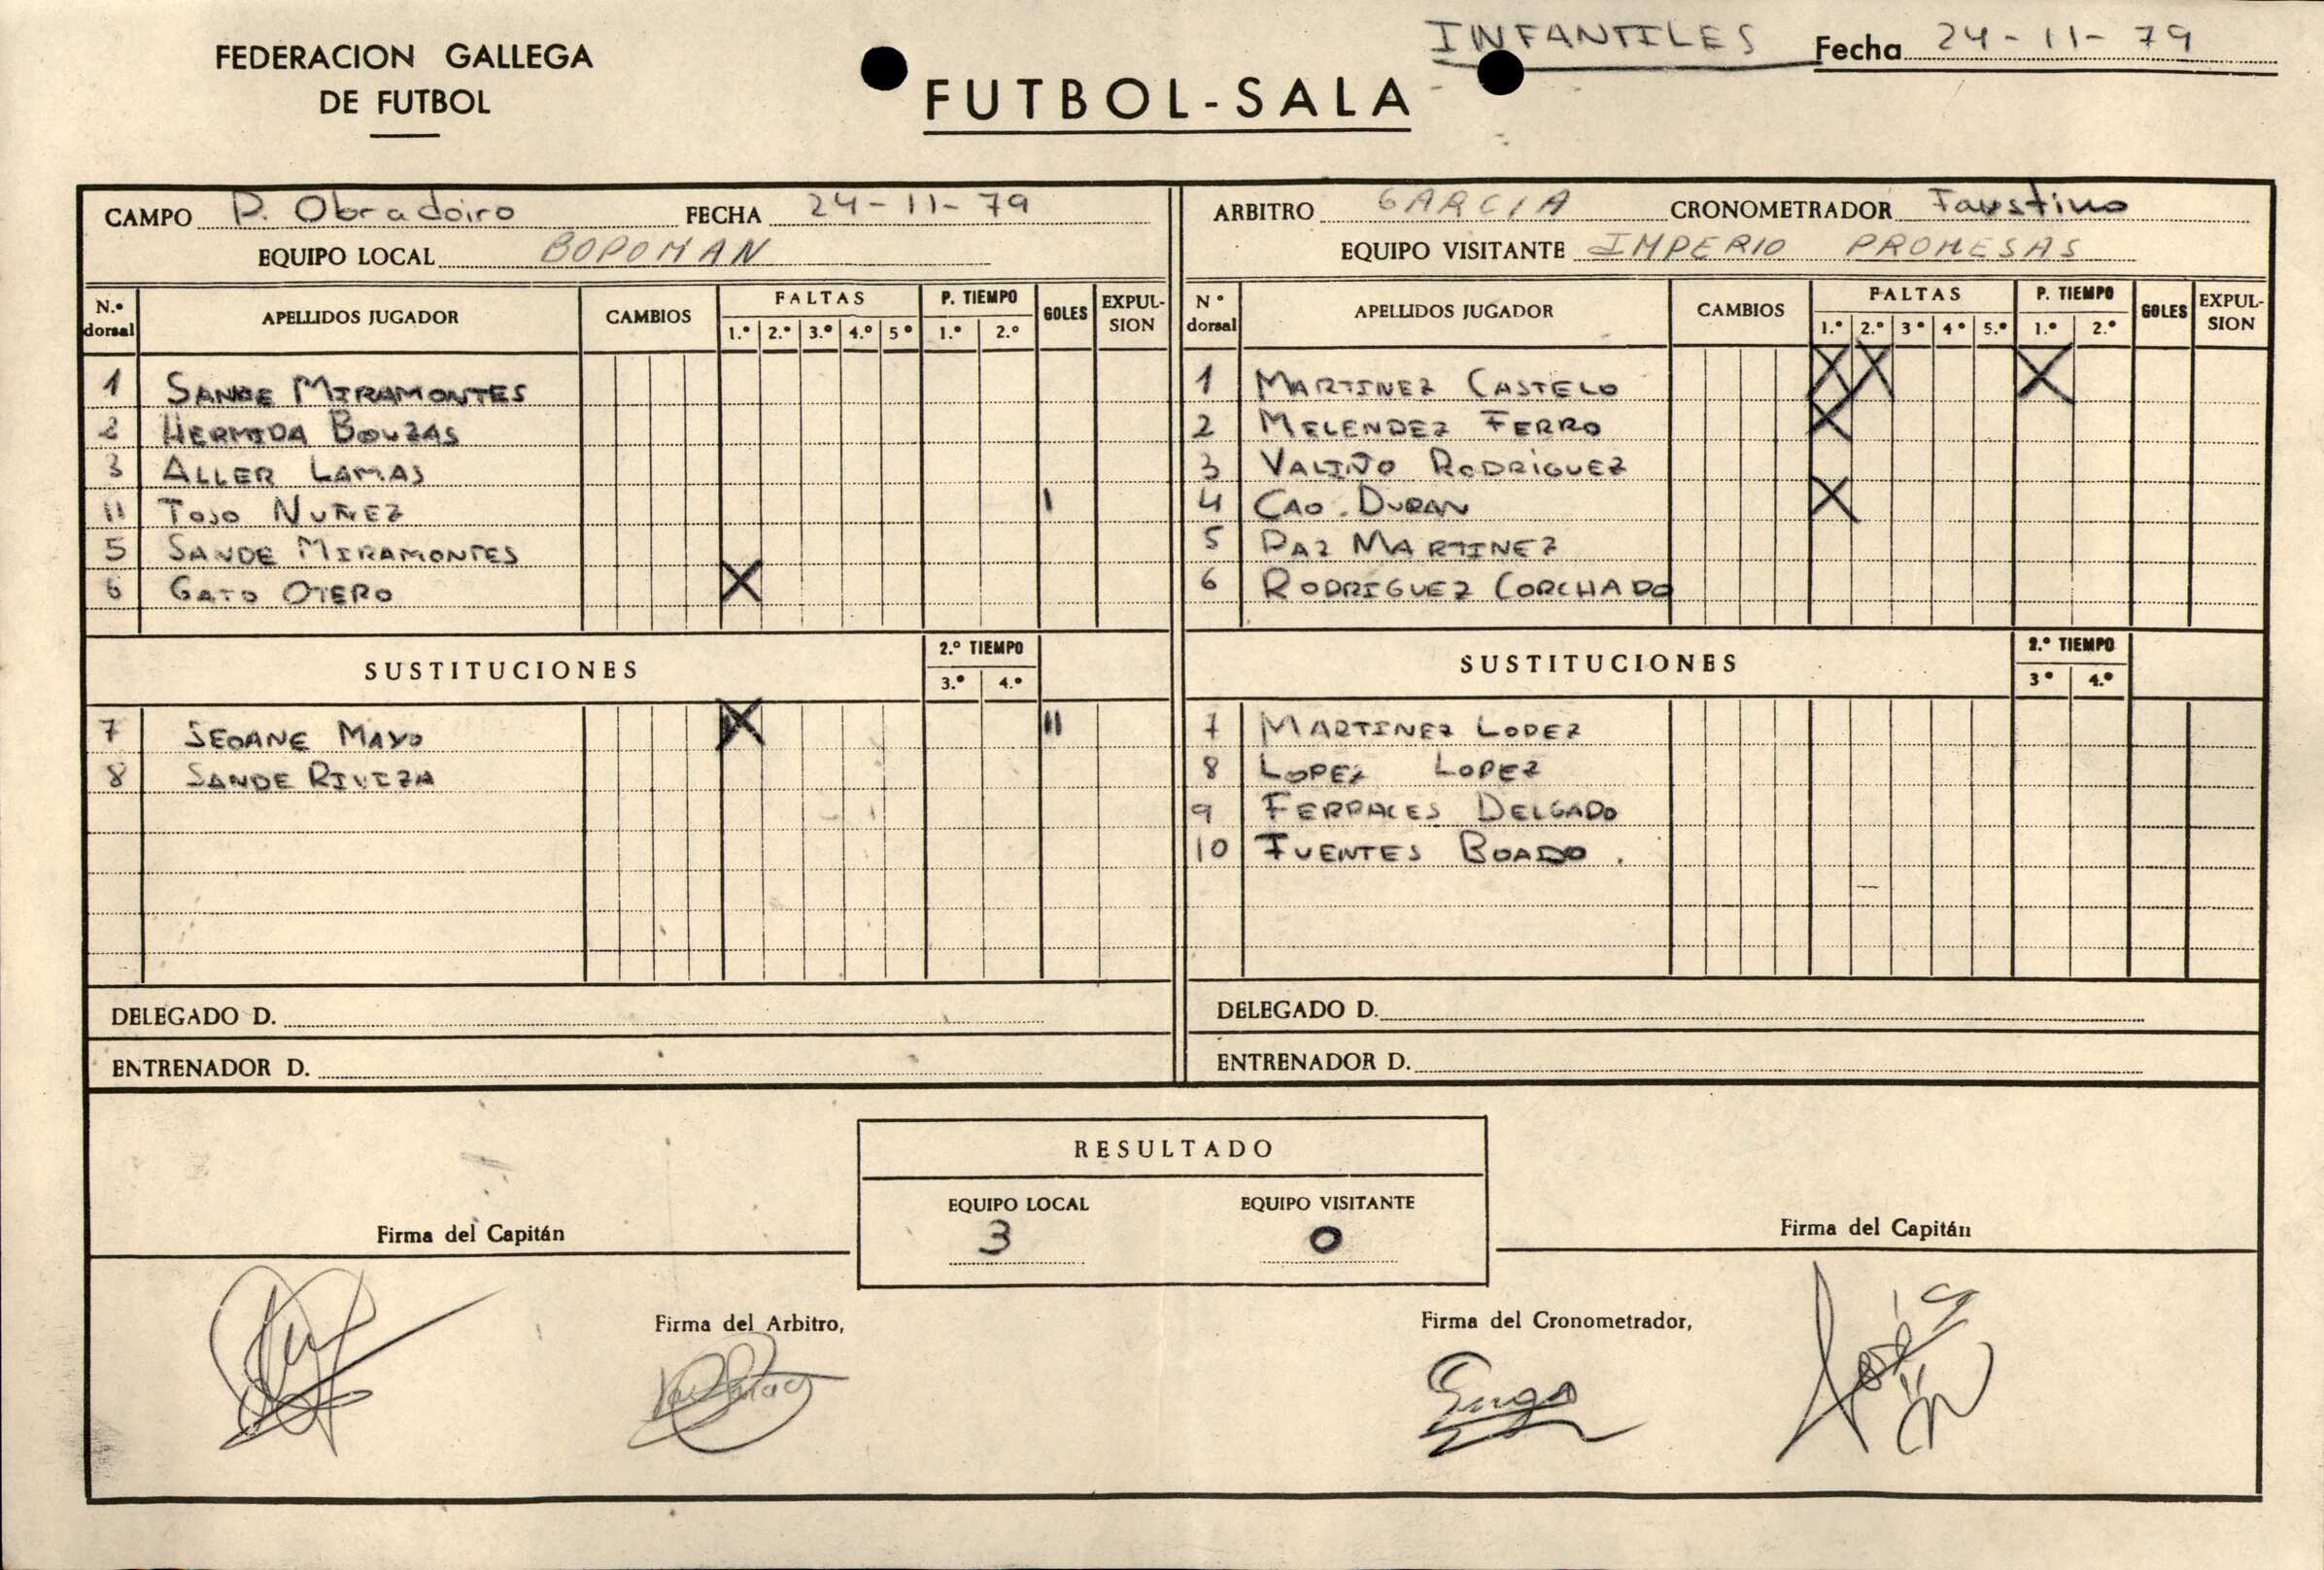 FEDERACION GALLEGA
DE FUTBOL
FUTBOL-SALA
INFANTILES
Fecha 24-11-79
CAMPO P. Obradoiro FECHA 24-11-79
EQUIPO LOCAL BOPOMAN
N.º dorsal APELLIDOS JUGADOR CAMBIOS FALTAS 1.º 2.º 3.º 4.º 5º P. TIEMPO 1.º 2.º GOLES EXPULSION
1 SANDE MIRAMONTES
2 HERMIDA BOUZAS
3 ALLER LAMAS
11 TOJO NUÑEZ I
5 SANDE MIRAMONTES
6 GATO OTERO X
SUSTITUCIONES 2.º TIEMPO 3.º 4.º
7 SEOANE MAYO X II
8 SANDE RIVEZA
DELEGADO D.
ENTRENADOR D.
ARBITRO GARCIA CRONOMETRADOR Faustino
EQUIPO VISITANTE IMPERIO PROMESAS
Nº dorsal APELLIDOS JUGADOR CAMBIOS FALTAS 1.º 2.º 3º 4º 5.º P. TIEMPO 1.º 2.º GOLES EXPULSION
1 MARTINEZ CASTELO X X X
2 MELENDEZ FERRO X
3 VALIÑO RODRIGUEZ
4 CAO. DURAN X
5 PAZ MARTINEZ
6 RODRIGUEZ CORCHADO
SUSTITUCIONES 2.º TIEMPO 3º 4.º
7 MARTINEZ LOPEZ
8 LOPEZ LOPEZ
9 FERRACES DELGADO
10 FUENTES BOADO.
DELEGADO D.
ENTRENADOR D.
RESULTADO
EQUIPO LOCAL EQUIPO VISITANTE
3 0
Firma del Capitán
Firma del Capitán
Firma del Arbitro,
Firma del Cronometrador,